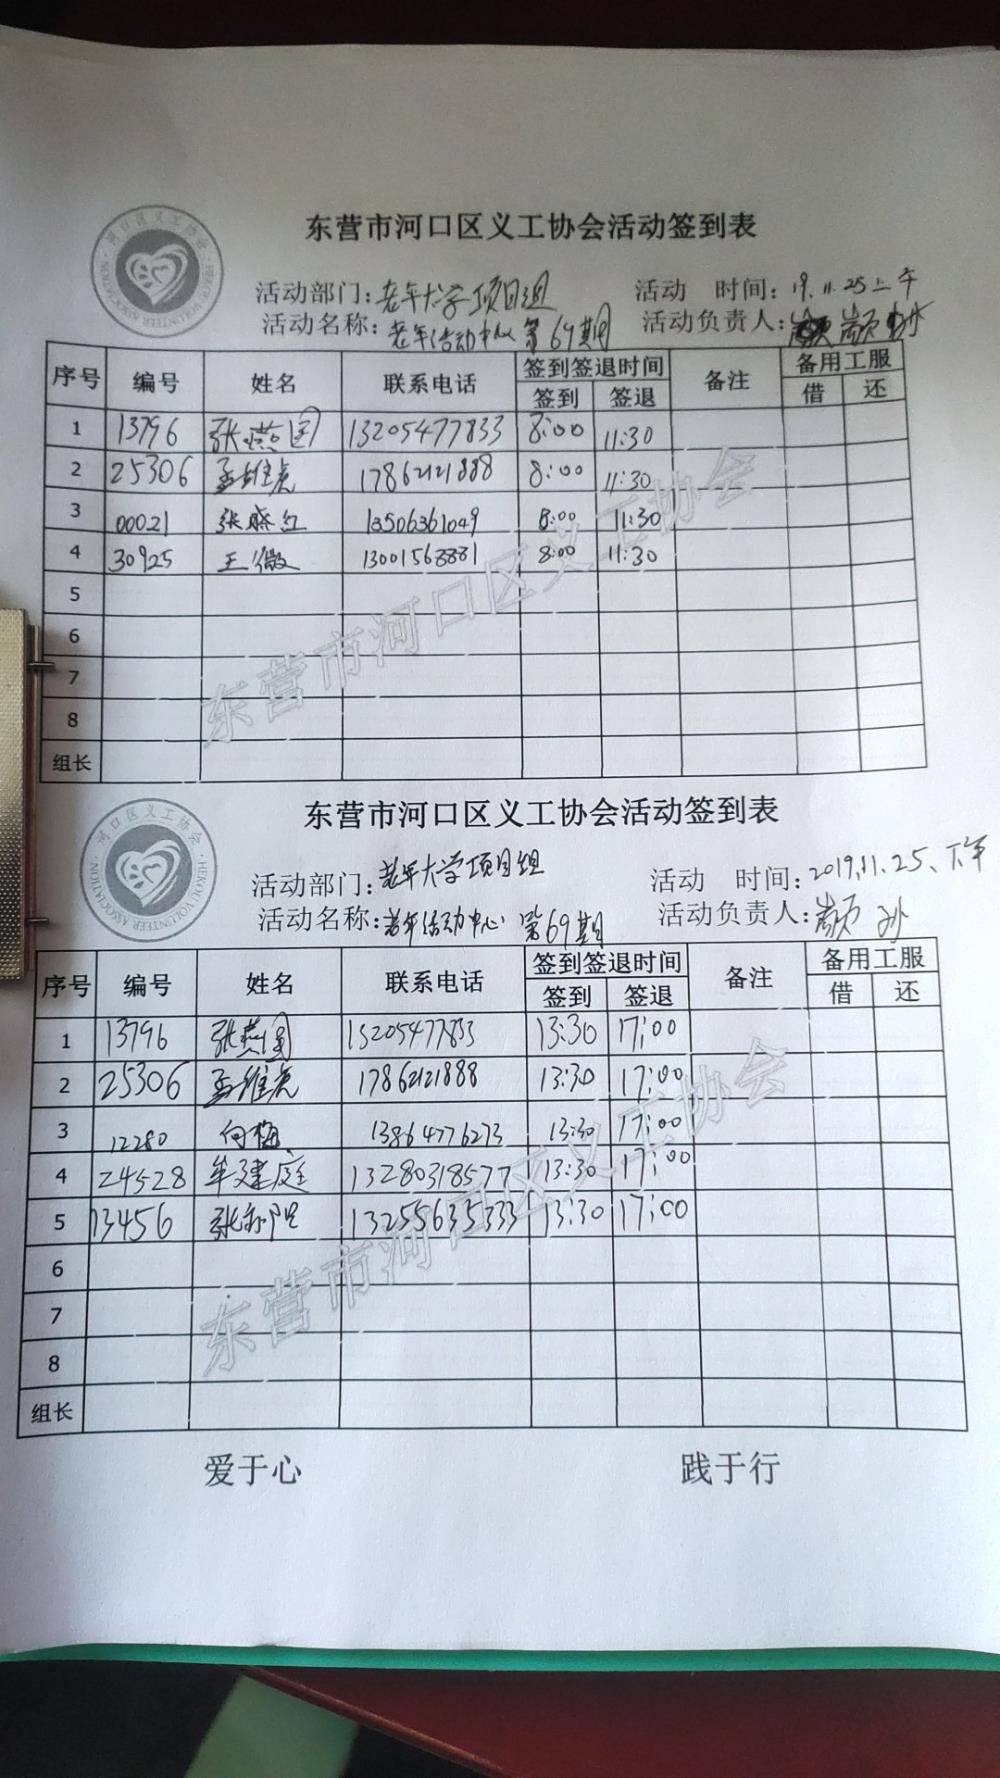 东营市河口区义工协会活动签到表
河口区义工协会
HEKOU VOLUNTEER ASSOCIATION
活动部门：老年大学项目组 活动 时间：19.11.25上午
活动名称：老年活动中心第69期 活动负责人：
序号 编号 姓名 联系电话 签到签退时间 备注 备用工服
签到 签退 借 还
1 13796 张燕国 13205477833 8:00 11:30
2 25306 孟维虎 17862121888 8:00 11:30
3 00021 张晓红 13506361049 8:00 11:30
4 30925 王微 13001568881 8:00 11:30
5
6
7
8
组长
东营市河口区义工协会
东营市河口区义工协会活动签到表
河口区义工协会
HEKOU VOLUNTEER ASSOCIATION
活动部门：老年大学项目组 活动 时间：2019.11.25、下午
活动名称：老年活动中心 第69期 活动负责人：
序号 编号 姓名 联系电话 签到签退时间 备注 备用工服
签到 签退 借 还
1 13796 张燕国 13205477833 13:30 17:00
2 25306 孟维虎 17862121888 13:30 17:00
3 12280 向梅 13864776273 13:30 17:00
4 24528 牟建庭 13280318577 13:30 17:00
5 13456 13255635333 13:30 17:00
6
7
8
组长
东营市河口区义工协会
爱于心 践于行